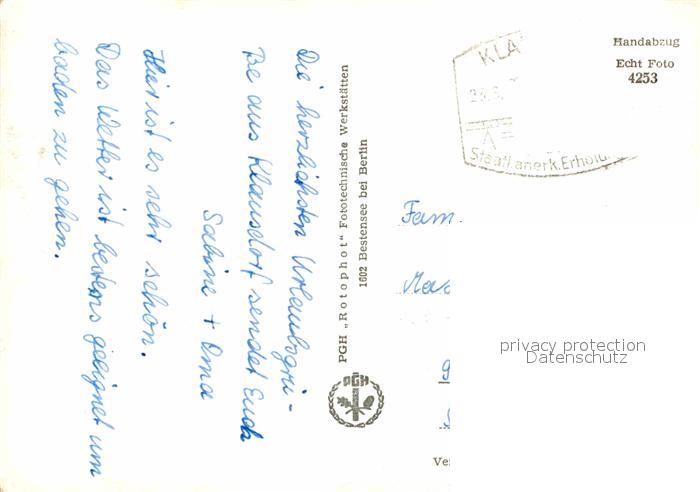 Die herzlichsten Urlaubsgrü-
ße aus Klausdorf sendet Euch
Sabine + Oma
Hier ist es sehr schön.
Das Wetter ist bestens geeignet um
baden zu gehen.
PGH „Rotophot“ Fototechnische Werkstätten
1602 Bestensee bei Berlin
PGH
Handabzug
Echt Foto
4253
KLA
Staatl. anerk. Erholu
Fam
privacy protection
Datenschutz